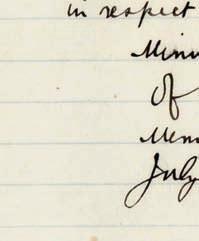 in respect
Minu
of
Mem
July